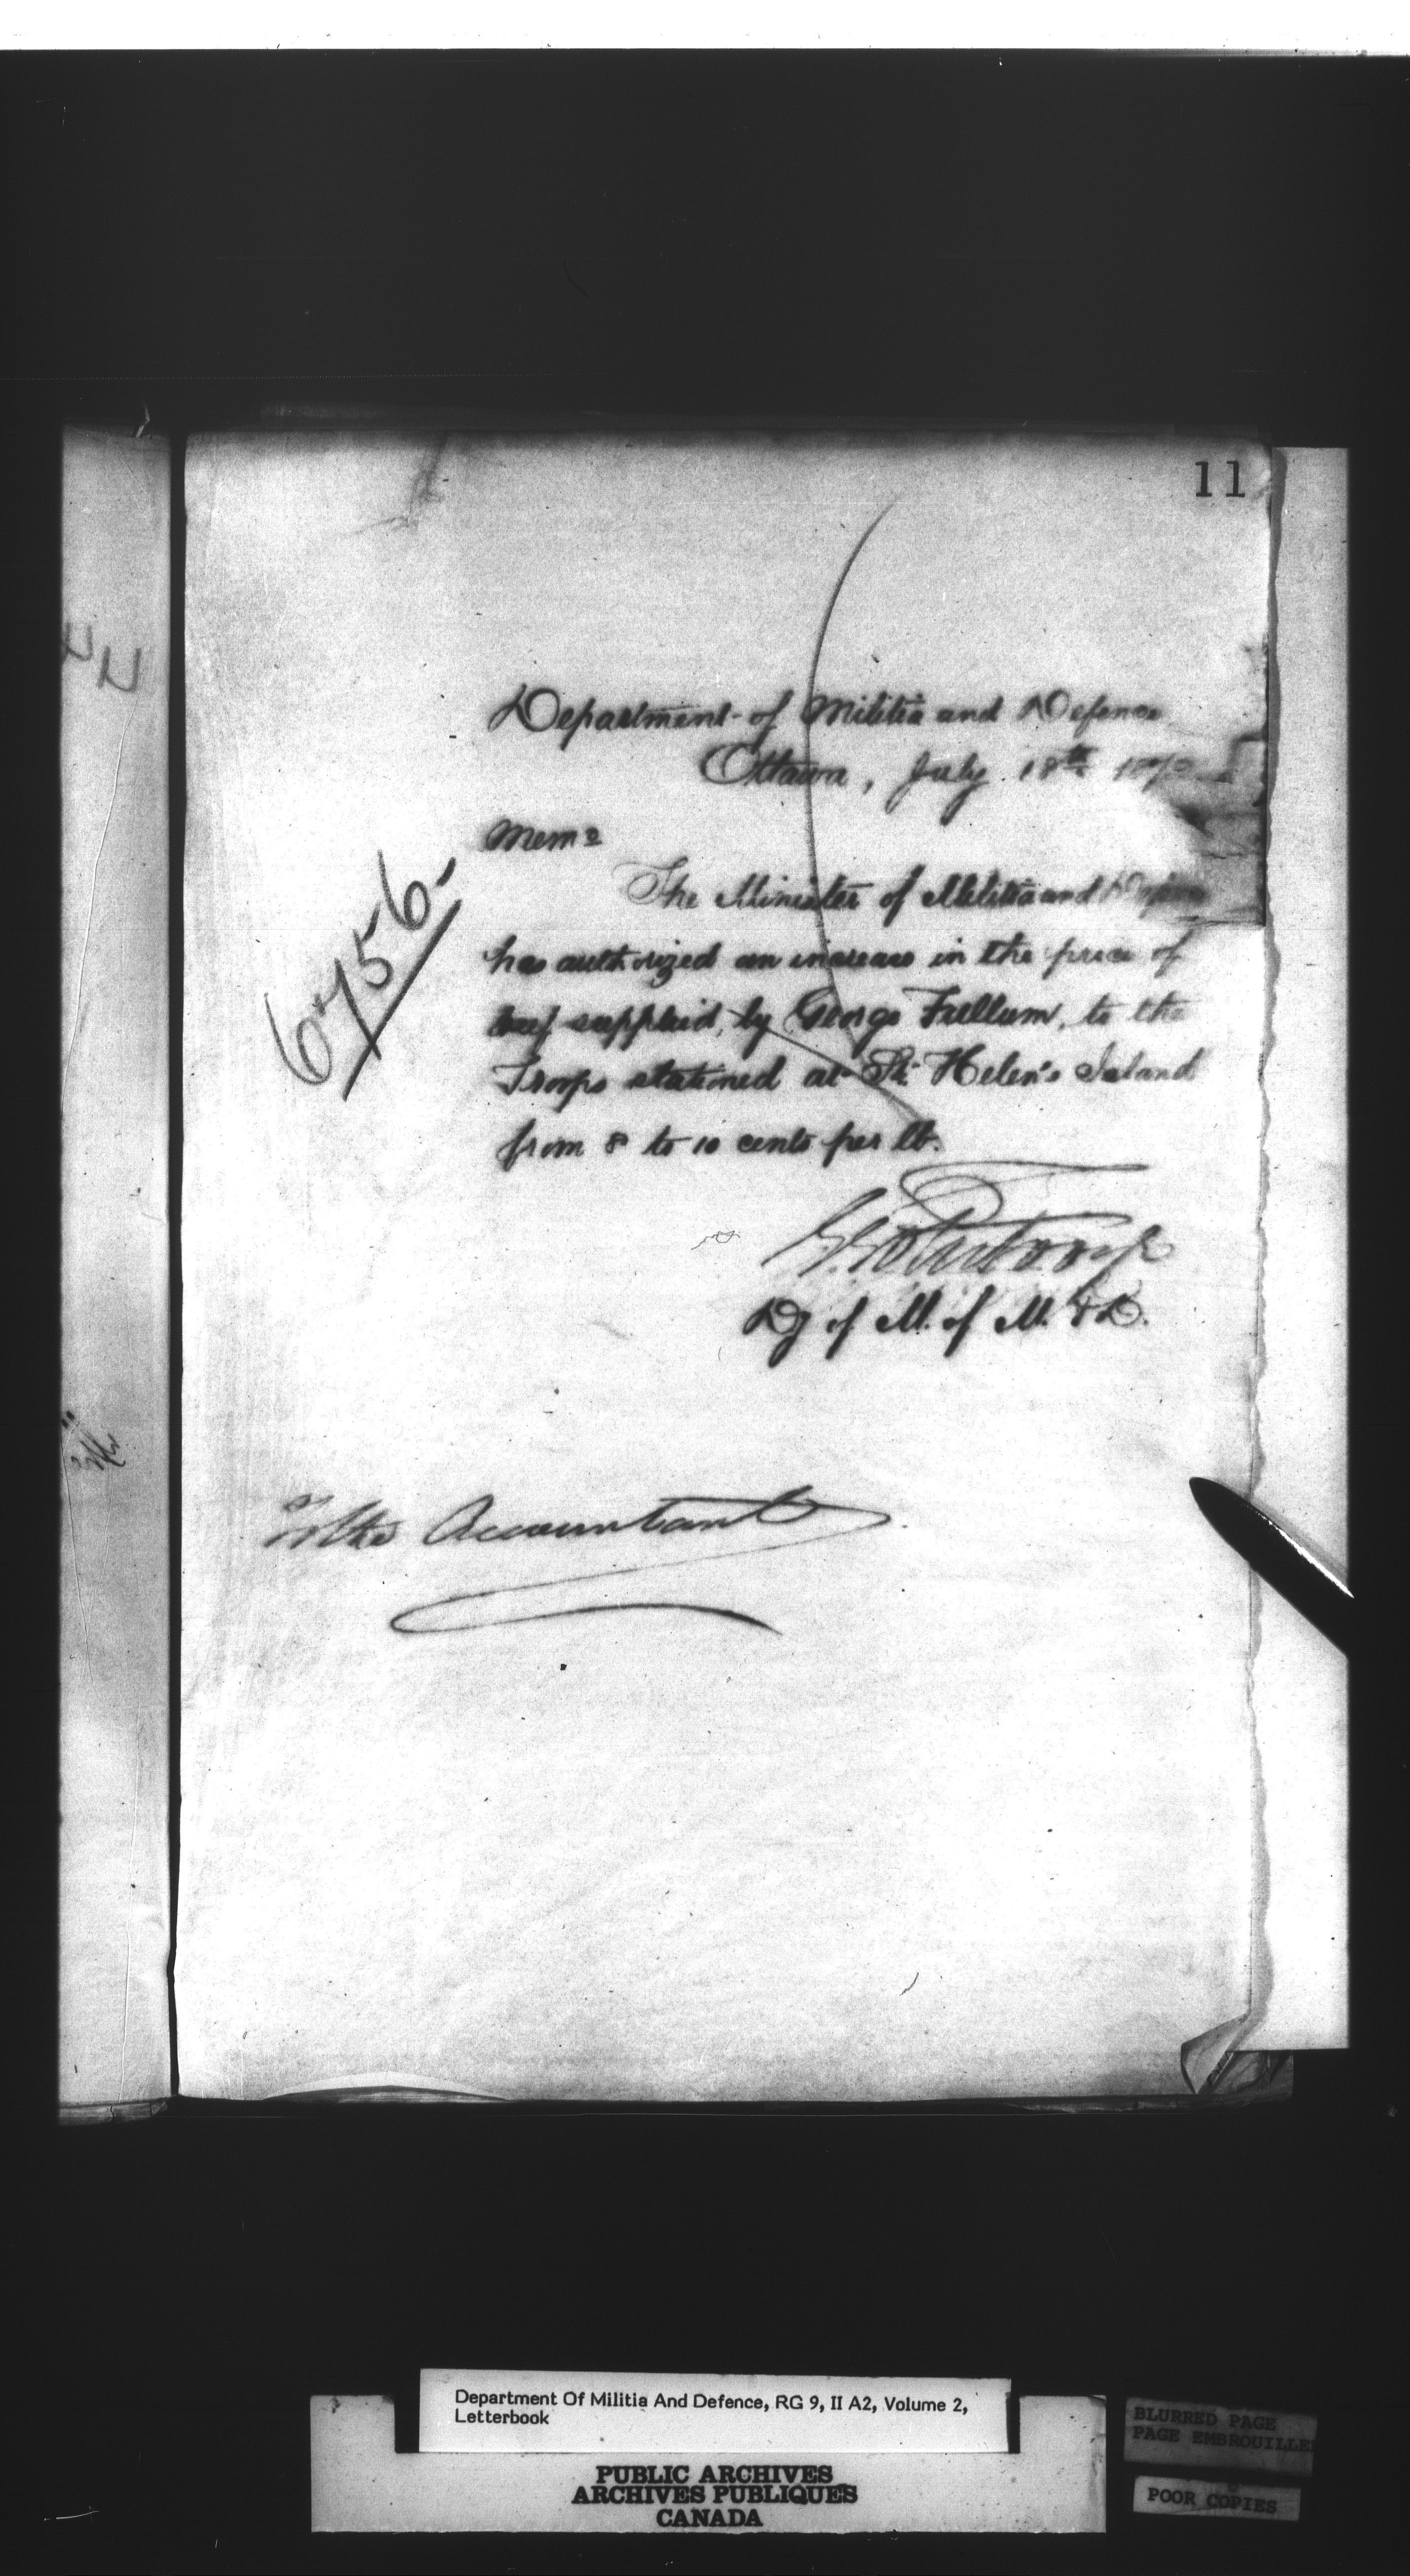 11
Department of Militia and Defence
Ottawa, July 18th 1870
Memo
6756
The Minister of Militia and Defence
has authorized an increase in the price of
beef supplied, by George Fullum, to the
Troops stationed at St. Helen's Island
from 8 to 10 cents per lb.
Dy of M. of M. & D.
To the Accountant
Department Of Militia And Defence, RG 9, II A2, Volume 2,
Letterbook
PUBLIC ARCHIVES
ARCHIVES PUBLIQUES
CANADA
BLURRED PAGE
PAGE EMBROUILLE
POOR COPIES